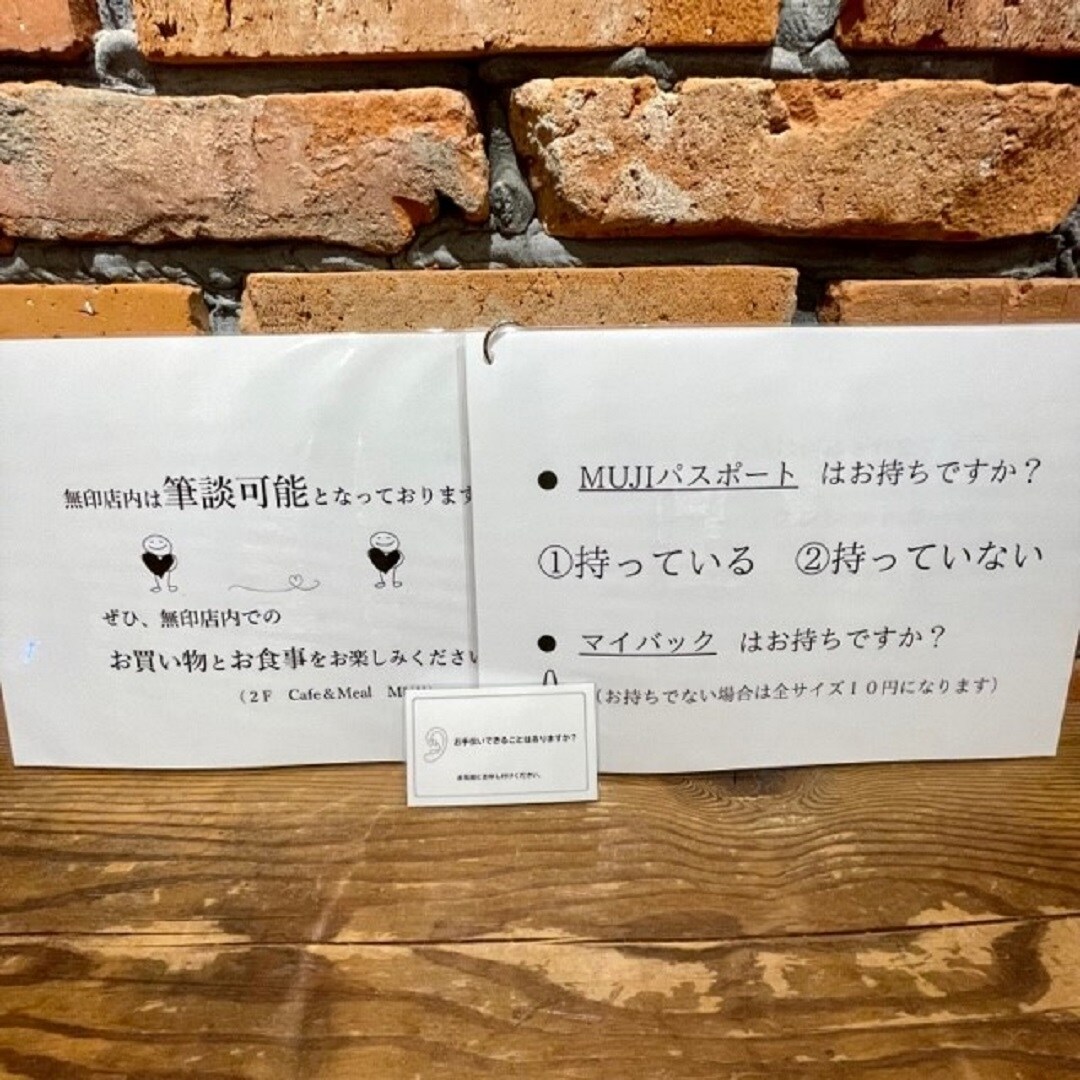 無印店内は筆談可能となっております
ぜひ、無印店内での
お買い物とお食事をお楽しみください
(2F Cafe&Meal
● MUJIパスポート はお持ちですか？
①持っている ②持っていない
● マイバック はお持ちですか？
(お持ちでない場合は全サイズ１０円になります)
お手伝いできることはありますか？
お気軽にお申し付けください。